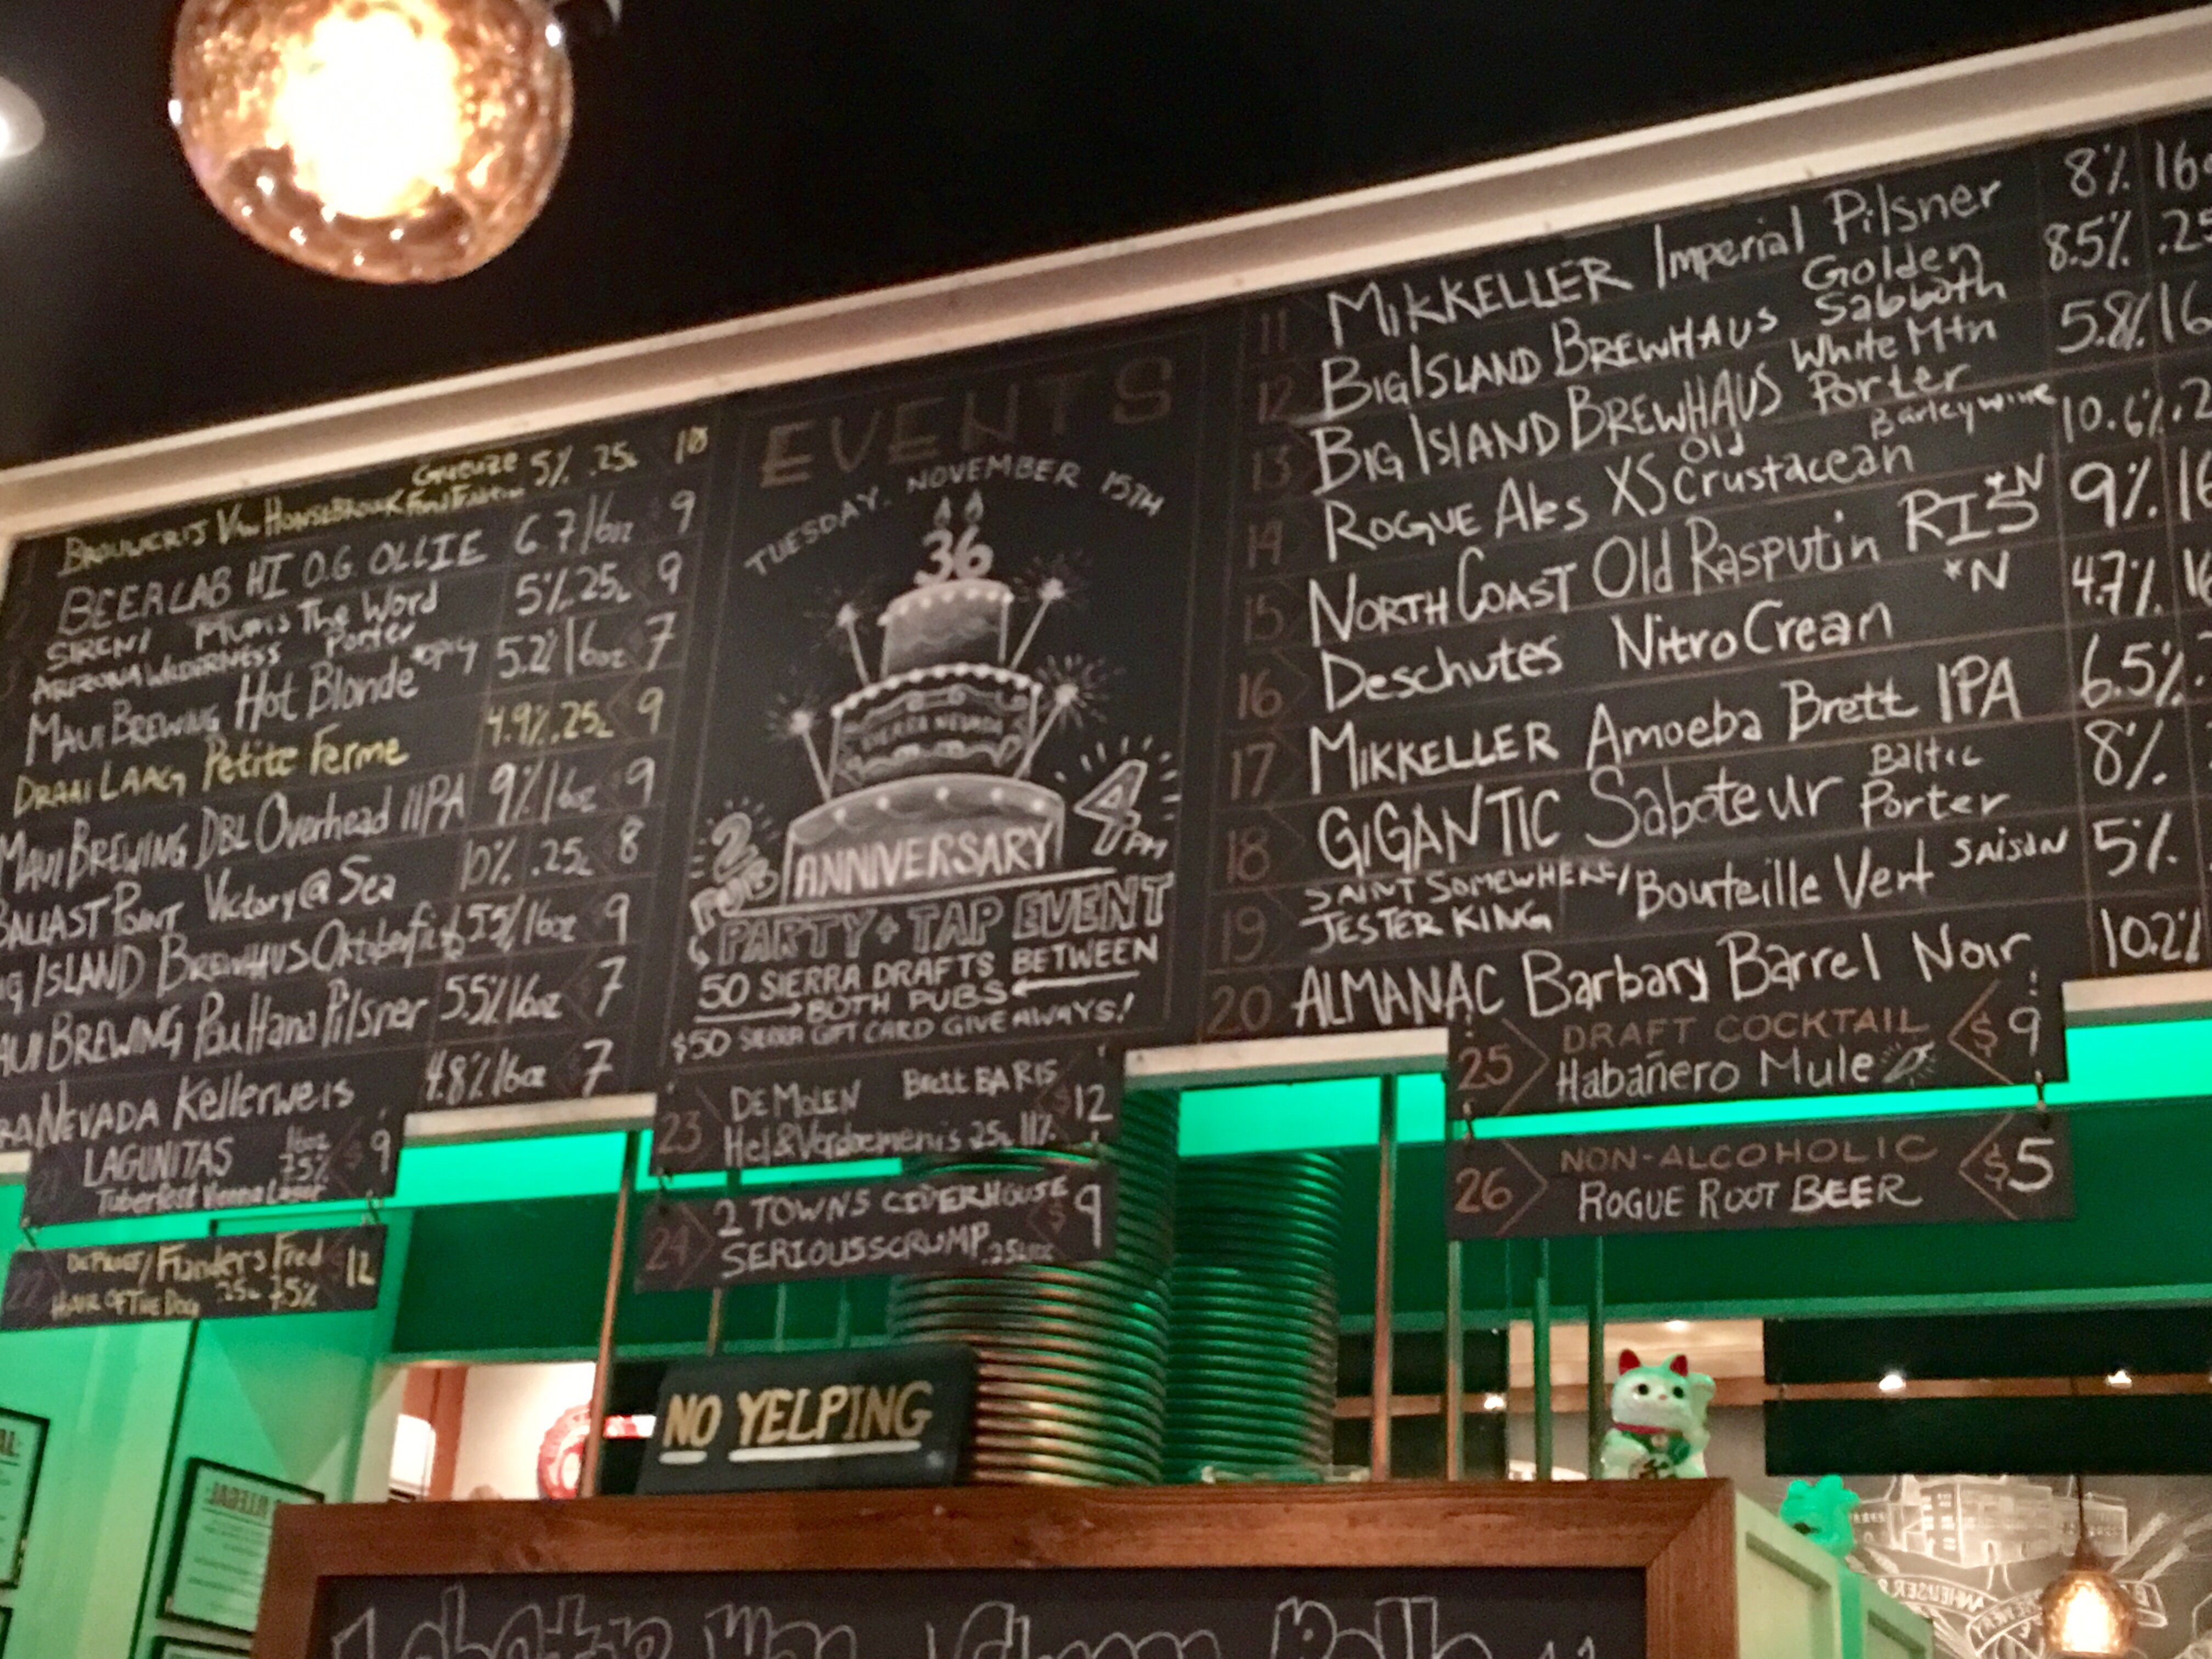 5% .25L 10
BEERLAB HI O.G. OLLIE 6.7/16oz 9
SIREN/ Mum's The Word
ARIZONA WILDERNESS Porter 5%.25L 9
MAUI BREWING Hot Blonde 5.2%/16oz 7
DRAAI LAAG Petite Ferme 4.9%.25L 9
MAUI BREWING DBL Overhead IIPA 9%/16oz 9
BALLAST POINT Victory @ Sea 10% .25L 8
ISLAND BREWHAUS 5.5%/16oz 9
BREWING Pau Hana Pilsner 5.5%/16oz 7
NEVADA Kellerweis 4.8%/16oz 7
LAGUNITAS 16oz 7.5% $9
22 Flanders Fred $12
HAIR OF THE DOG .25L 7.5%
EVENTS
TUESDAY, NOVEMBER 15TH
36
SIERRA NEVADA
ANNIVERSARY
2 PUB 4PM
PARTY + TAP EVENT
50 SIERRA DRAFTS BETWEEN
BOTH PUBS
$50 SIERRA GIFT CARD GIVE AWAYS!
23 DE MOLEN Brett BA RIS $12
Hel & Verdoemenis .25L 11%
24 2 TOWNS CIDERHOUSE $9
SERIOUS SCRUMP
11 MIKKELLER Imperial Pilsner 8%
12 BIG ISLAND BREWHAUS Golden Sabboth 8.5%
13 BIG ISLAND BREWHAUS White Mtn Porter 5.8%
14 ROGUE Ales XS Old Crustacean Barleywine 10.6%
15 NORTH COAST Old Rasputin RIS *N 9%
16 Deschutes Nitro Cream *N 4.7%
17 MIKKELLER Amoeba Brett IPA 6.5%
18 GIGANTIC Saboteur Baltic Porter 8%.
19 SAINT SOMEWHERE/
JESTER KING Bouteille Vert SAISON 5%.
20 ALMANAC Barbary Barrel Noir 10.2%
25 DRAFT COCKTAIL $9
Habañero Mule
26 NON-ALCOHOLIC $5
ROGUE ROOT BEER
NO YELPING